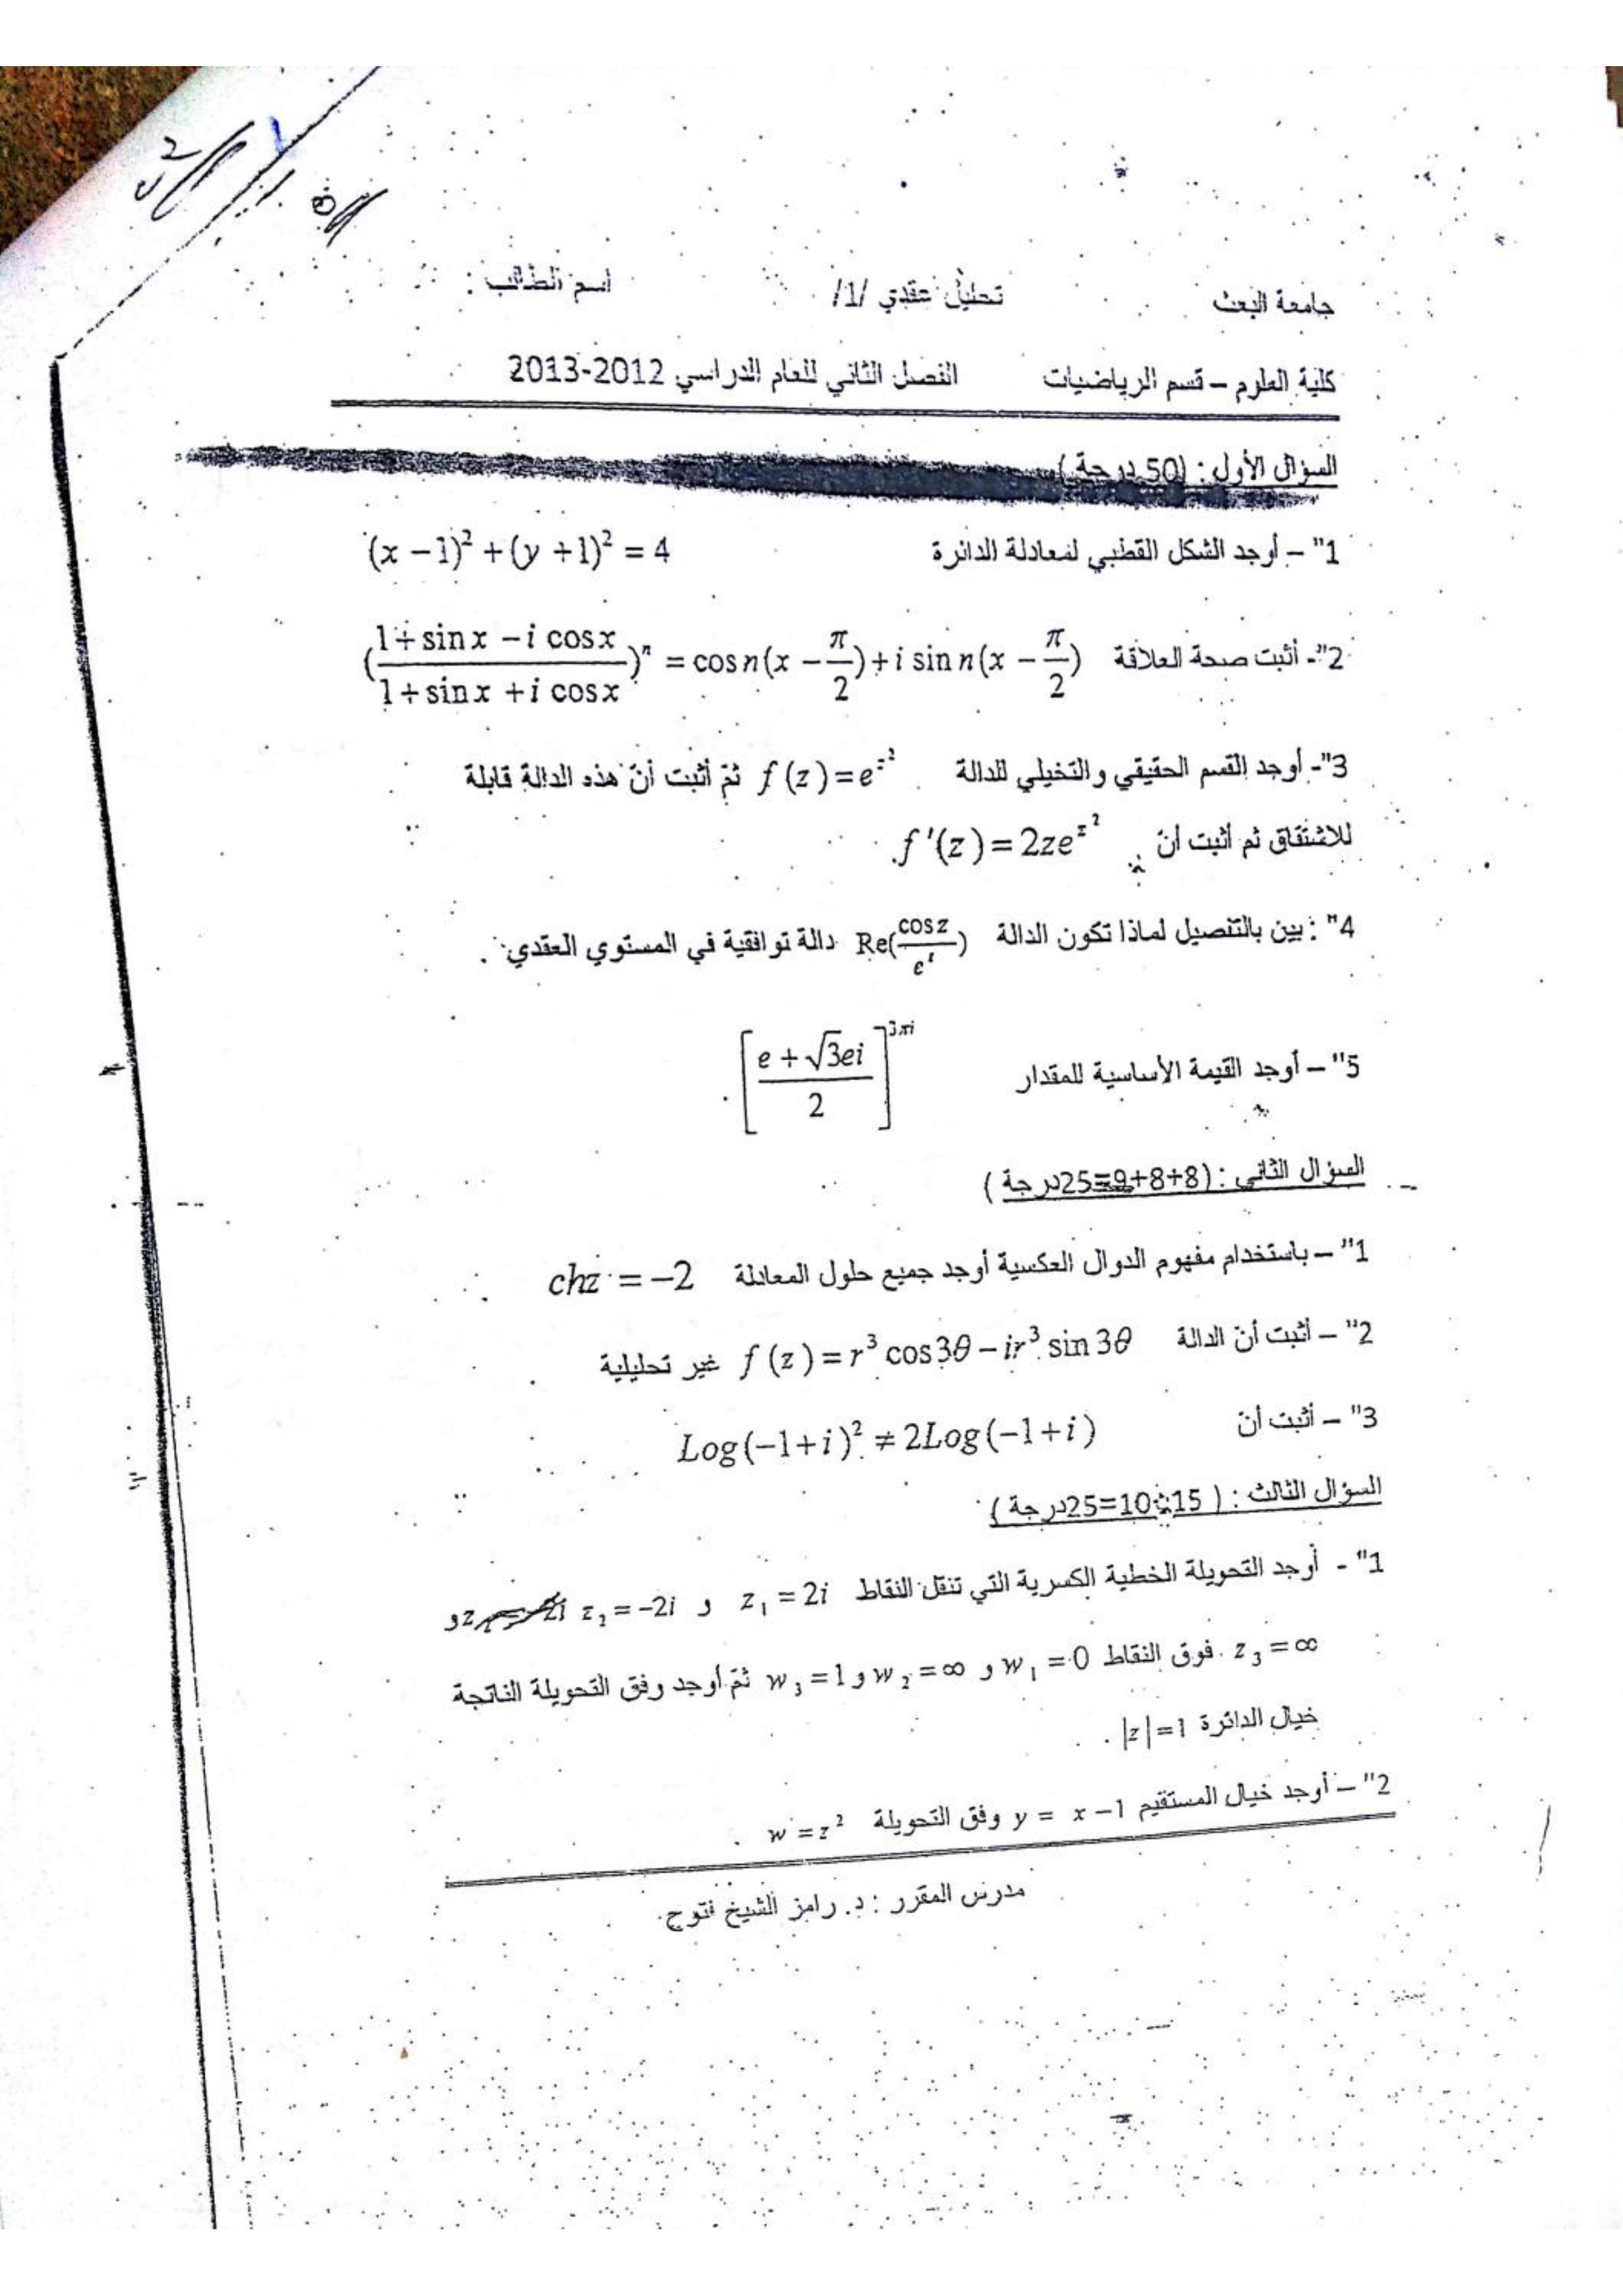 جامعة البعث تحليل عقدي /1/ اسم الطالب :
كلية العلوم – قسم الرياضيات الفصل الثاني للعام الدراسي 2012-2013
السؤال الأول : (50 درجة)
1" – أوجد الشكل القطبي لمعادلة الدائرة (x − 1)² + (y + 1)² = 4
2"- أثبت صحة العلاقة ((1 + sin x − i cos x)/(1 + sin x + i cos x))ⁿ = cos n(x − π/2) + i sin n(x − π/2)
3"- أوجد القسم الحقيقي والتخيلي للدالة f(z) = e^{z²} ثم أثبت أنّ هذه الدالة قابلة
للاشتقاق ثم أثبت أنّ f'(z) = 2ze^{z²} .
4" : بين بالتفصيل لماذا تكون الدالة Re(cos z / e^z) دالة توافقية في المستوي العقدي .
5" – أوجد القيمة الأساسية للمقدار [(e + √3ei)/2]^{3πi} .
السؤال الثاني : (8+8+9=25درجة )
1" – باستخدام مفهوم الدوال العكسية أوجد جميع حلول المعادلة chz = −2
2" – أثبت أنّ الدالة f(z) = r³ cos3θ − ir³ sin 3θ غير تحليلية
3" – أثبت أنّ Log(−1+i)² ≠ 2Log(−1+i)
السؤال الثالث : ( 15+10=25درجة )
1" - أوجد التحويلة الخطية الكسرية التي تنقل النقاط z₁ = 2i و z₂ = −2i و
z₃ = ∞ فوق النقاط w₁ = 0 و w₂ = ∞ و w₃ = 1 ثمّ أوجد وفق التحويلة الناتجة
خيال الدائرة |z| = 1 .
2" – أوجد خيال المستقيم y = x − 1 وفق التحويلة w = z² .
مدرس المقرر : د. رامز الشيخ فتوح